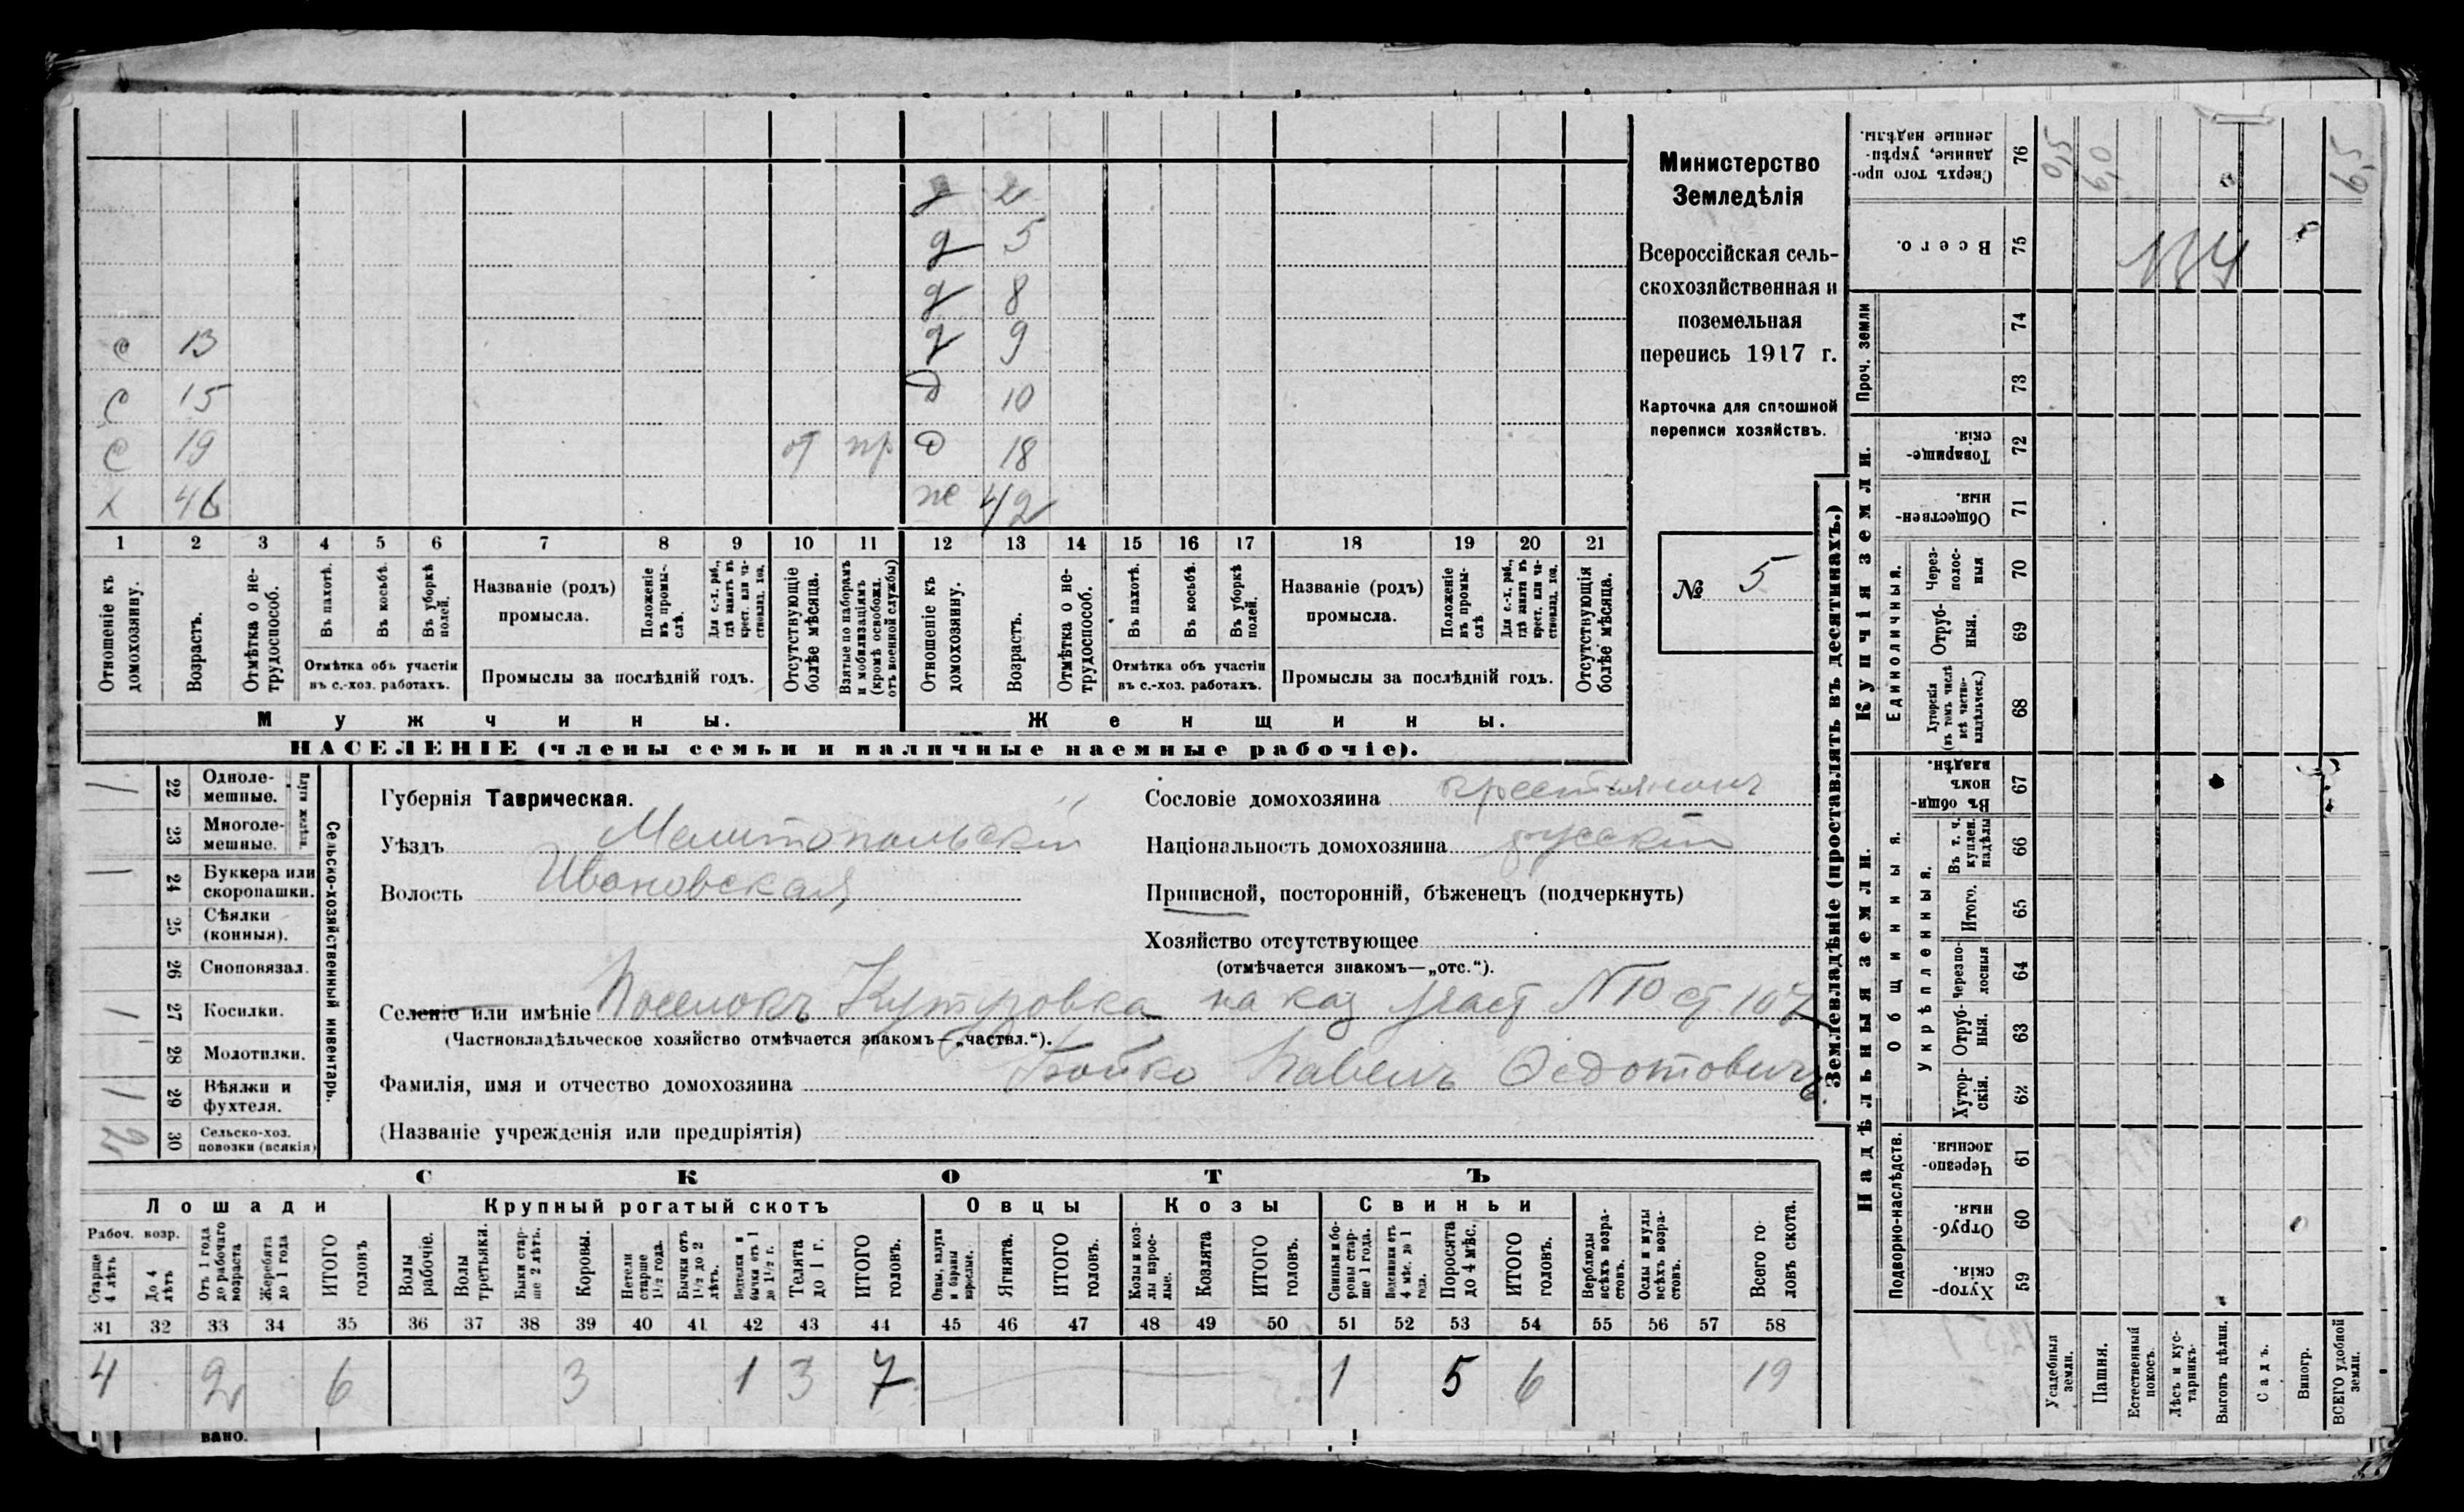 Министерство
Земледѣлія
Всероссійская сель-
скохозяйственная и
поземельная
перепись 1917 г.
Карточка для сплошной
переписи хозяйствъ.
№ 5
д 2
д 5
д 8
с 13 д 9
с 15 д 10
с 19 от пр д 18
х 46 ж 42
1 2 3 4 5 6 7 8 9 10 11 12 13 14 15 16 17 18 19 20 21
Отношеніе къ домохозяину.
Возрастъ.
Отмѣтка о не-трудоспособ.
Въ пахотѣ.
Въ косьбѣ.
Въ уборкѣ полей.
Отмѣтка объ участіи
въ с.-хоз. работахъ.
Названіе (родъ)
промысла.
Положеніе въ промы-слѣ.
Для с.-х. раб., гдѣ занятъ въ крест. или ча-стновлад. хоз.
Промыслы за послѣдній годъ.
Отсутствующіе болѣе мѣсяца.
Взятые по наборамъ и мобилизаціямъ (кромѣ освобожд. отъ военной службы)
Отношеніе къ домохозяину.
Возрастъ.
Отмѣтка о не-трудоспособ.
Въ пахотѣ.
Въ косьбѣ.
Въ уборкѣ полей.
Отмѣтка объ участіи
въ с.-хоз. работахъ.
Названіе (родъ)
промысла.
Положеніе въ промы-слѣ
Для с.-х. раб., гдѣ занята въ крест. или ча-стновлад. хоз.
Промыслы за послѣдній годъ.
Отсутствующія болѣе мѣсяца.
Мужчины. Женщины.
НАСЕЛЕНІЕ (члены семьи и наличные наемные рабочіе).
Сельско-хозяйственный инвентарь.
Плуги желѣзн.
1 22 Одноле-мешные.
23 Многоле-мешные.
1 24 Буккера или скоропашки.
25 Сѣялки (конныя).
26 Сноповязал.
1 27 Косилки.
28 Молотилки.
1 29 Вѣялки и фухтеля.
30 Сельско-хоз. повозки (всякія)
Губернія Таврическая.
Уѣздъ Мелитопольскій
Волость Ивановская
Сословіе домохозяина крестьянинъ
Національность домохозяина русскій
Приписной, посторонній, бѣженецъ (подчеркнуть)
Хозяйство отсутствующее
(отмѣчается знакомъ—„отс.“).
Селеніе или имѣніе Поселокъ Кутузовка на каз участ №10 ст 107
(Частновладѣльческое хозяйство отмѣчается знакомъ—„частвл.“).
Фамилія, имя и отчество домохозяина Бойко Павелъ Федотовичъ
(Названіе учрежденія или предпріятія)
СКОТЪ
Лошади Крупный рогатый скотъ Овцы Козы Свиньи
Рабоч. возр.
Старше 4 лѣтъ
До 4 лѣтъ
Отъ 1 года до рабочаго возраста
Жеребята до 1 года
ИТОГО головъ
Волы рабочіе.
Волы третьяки.
Быки стар-ше 2 лѣтъ.
Коровы.
Нетели старше 1½ года.
Бычки отъ 1½ до 2 лѣтъ.
Нетелки и бычки отъ 1 до 1½ г.
Телята до 1 г.
ИТОГО головъ.
Овцы, валухи и бараны взрослые.
Ягнята.
ИТОГО головъ.
Козы и коз-лы взрос-лые.
Козлята
ИТОГО головъ.
Свиньи и бо-ровы стар-ше 1 года.
Подсвинки отъ 4 мѣс. до 1 года.
Поросята до 4 мѣс.
ИТОГО головъ.
Верблюды всѣхъ возра-стовъ.
Ослы и мулы всѣхъ возра-стовъ.
Всего го-ловъ скота.
31 32 33 34 35 36 37 38 39 40 41 42 43 44 45 46 47 48 49 50 51 52 53 54 55 56 57 58
4 2 6 3 1 3 7 1 5 6 19
вано.
Землевладѣніе (проставлять въ десятинахъ.)
Надѣльныя земли. Купчія земли. Проч. земли
Подворно-наслѣдств.
Общинныя.
Укрѣпленныя.
Единоличныя.
Сверхъ того про-данные, укрѣп-ленные надѣлы. 76
Всего. 75
74
73
Товарище-скія. 72
Обществен-ныя. 71
Через-полос-ныя 70
Отруб-ныя. 69
Хуторскія (въ томъ числѣ всѣ частно-владѣльческ.) 68
Въ общин-номъ владѣн. 67
Въ т. ч. куплен. надѣлы 66
Итого. 65
Черезпо-лосныя 64
Отруб-ныя. 63
Хутор-скія. 62
Черезпо-лосныя 61
Отруб-ныя. 60
Хутор-скія. 59
Усадебныя земли.
Пашня.
Естественный покосъ.
Лѣсъ и кус-тарникъ.
Выгонъ цѣлин.
Садъ.
Виногр.
ВСЕГО удобной земли.